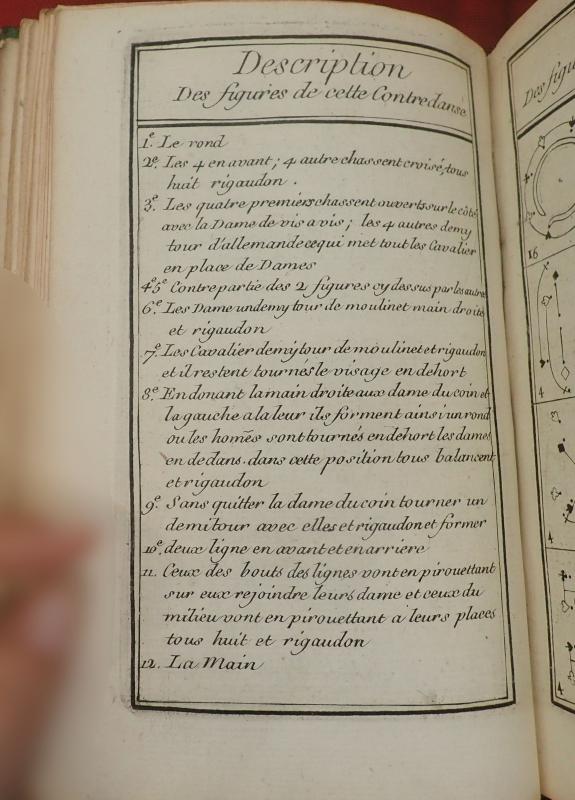 Description
Des figures de cette Contredanse
1.e Le rond
2.e Les 4 en avant; 4 autre chassent croisé, tous
huit rigaudon.
3.e Les quatre premiers chassent ouverts sur le côté
avec la Dame de vis a vis; les 4 autres demy
tour d'allemande ce qui met tout les Cavalier
en place de Dames
4.e 5.e Contre partie des 2 figures cy dessus par les autre
6.e Les Dame un demy tour de moulinet main droite
et rigaudon
7.e Les Cavalier demi tour de moulinet et rigaudon
et il restent tournés le visage en dehort
8.e En donant la main droite aux dame du coin et
la gauche a la leur ils forment ainsi un rond
ou les homẽs sont tournés en dehort les dames
en dedans. dans cette position tous balancent
et rigaudon
9.e Sans quitter la dame du coin tourner un
demi tour avec elles et rigaudon et former
10.e deux ligne en avant et en arriere
11. Ceux des bouts des lignes vont en pirouettant
sur eux rejoindre leurs dame et ceux du
milieu vont en pirouettant a leurs places
tous huit et rigaudon
12. La Main
Des figu
16
4
4
4